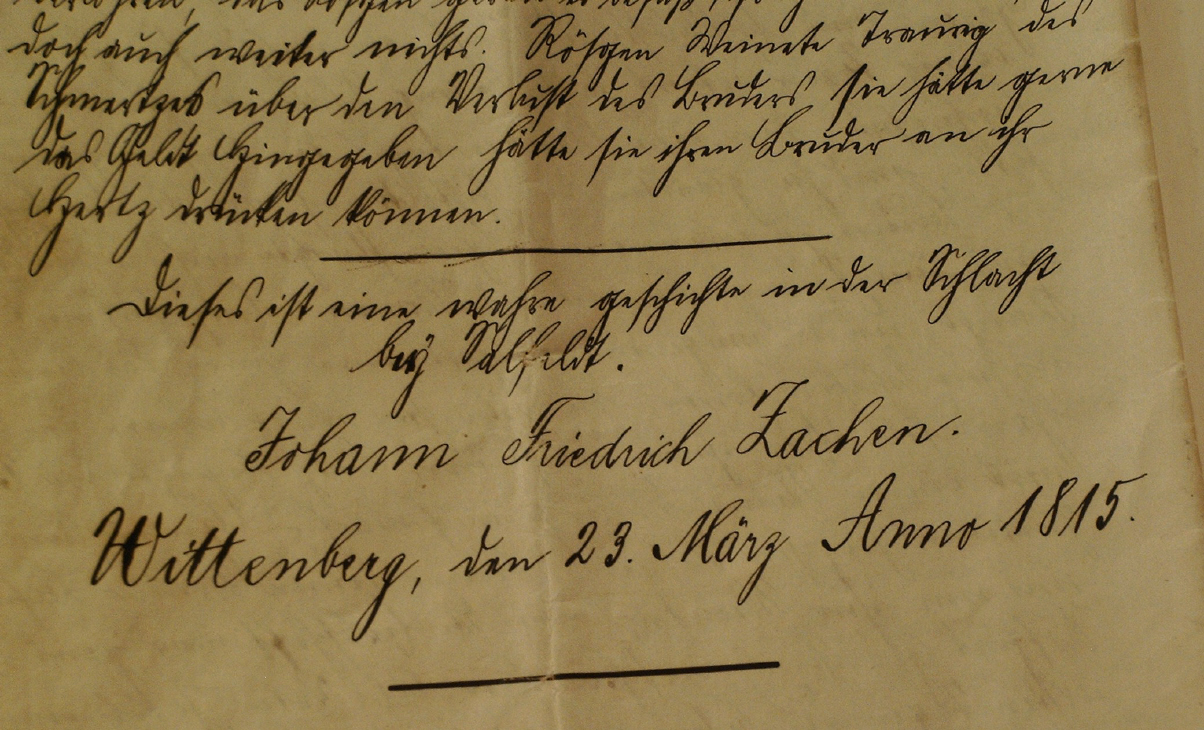 doch auch weiter nichts. Rösgen Weinete Traurig des
Schmertzes über den Verlust des Bruders, sie hätte gerne
das Geldt Hingegeben hätte sie ihren Bruder an ihr
Hertz drücken können.
Dieses ist eine wahre geschichte in der Schlacht
bey Salfeldt.
Johann Friedrich Zachen.
Wittenberg, den 23. März Anno 1815.